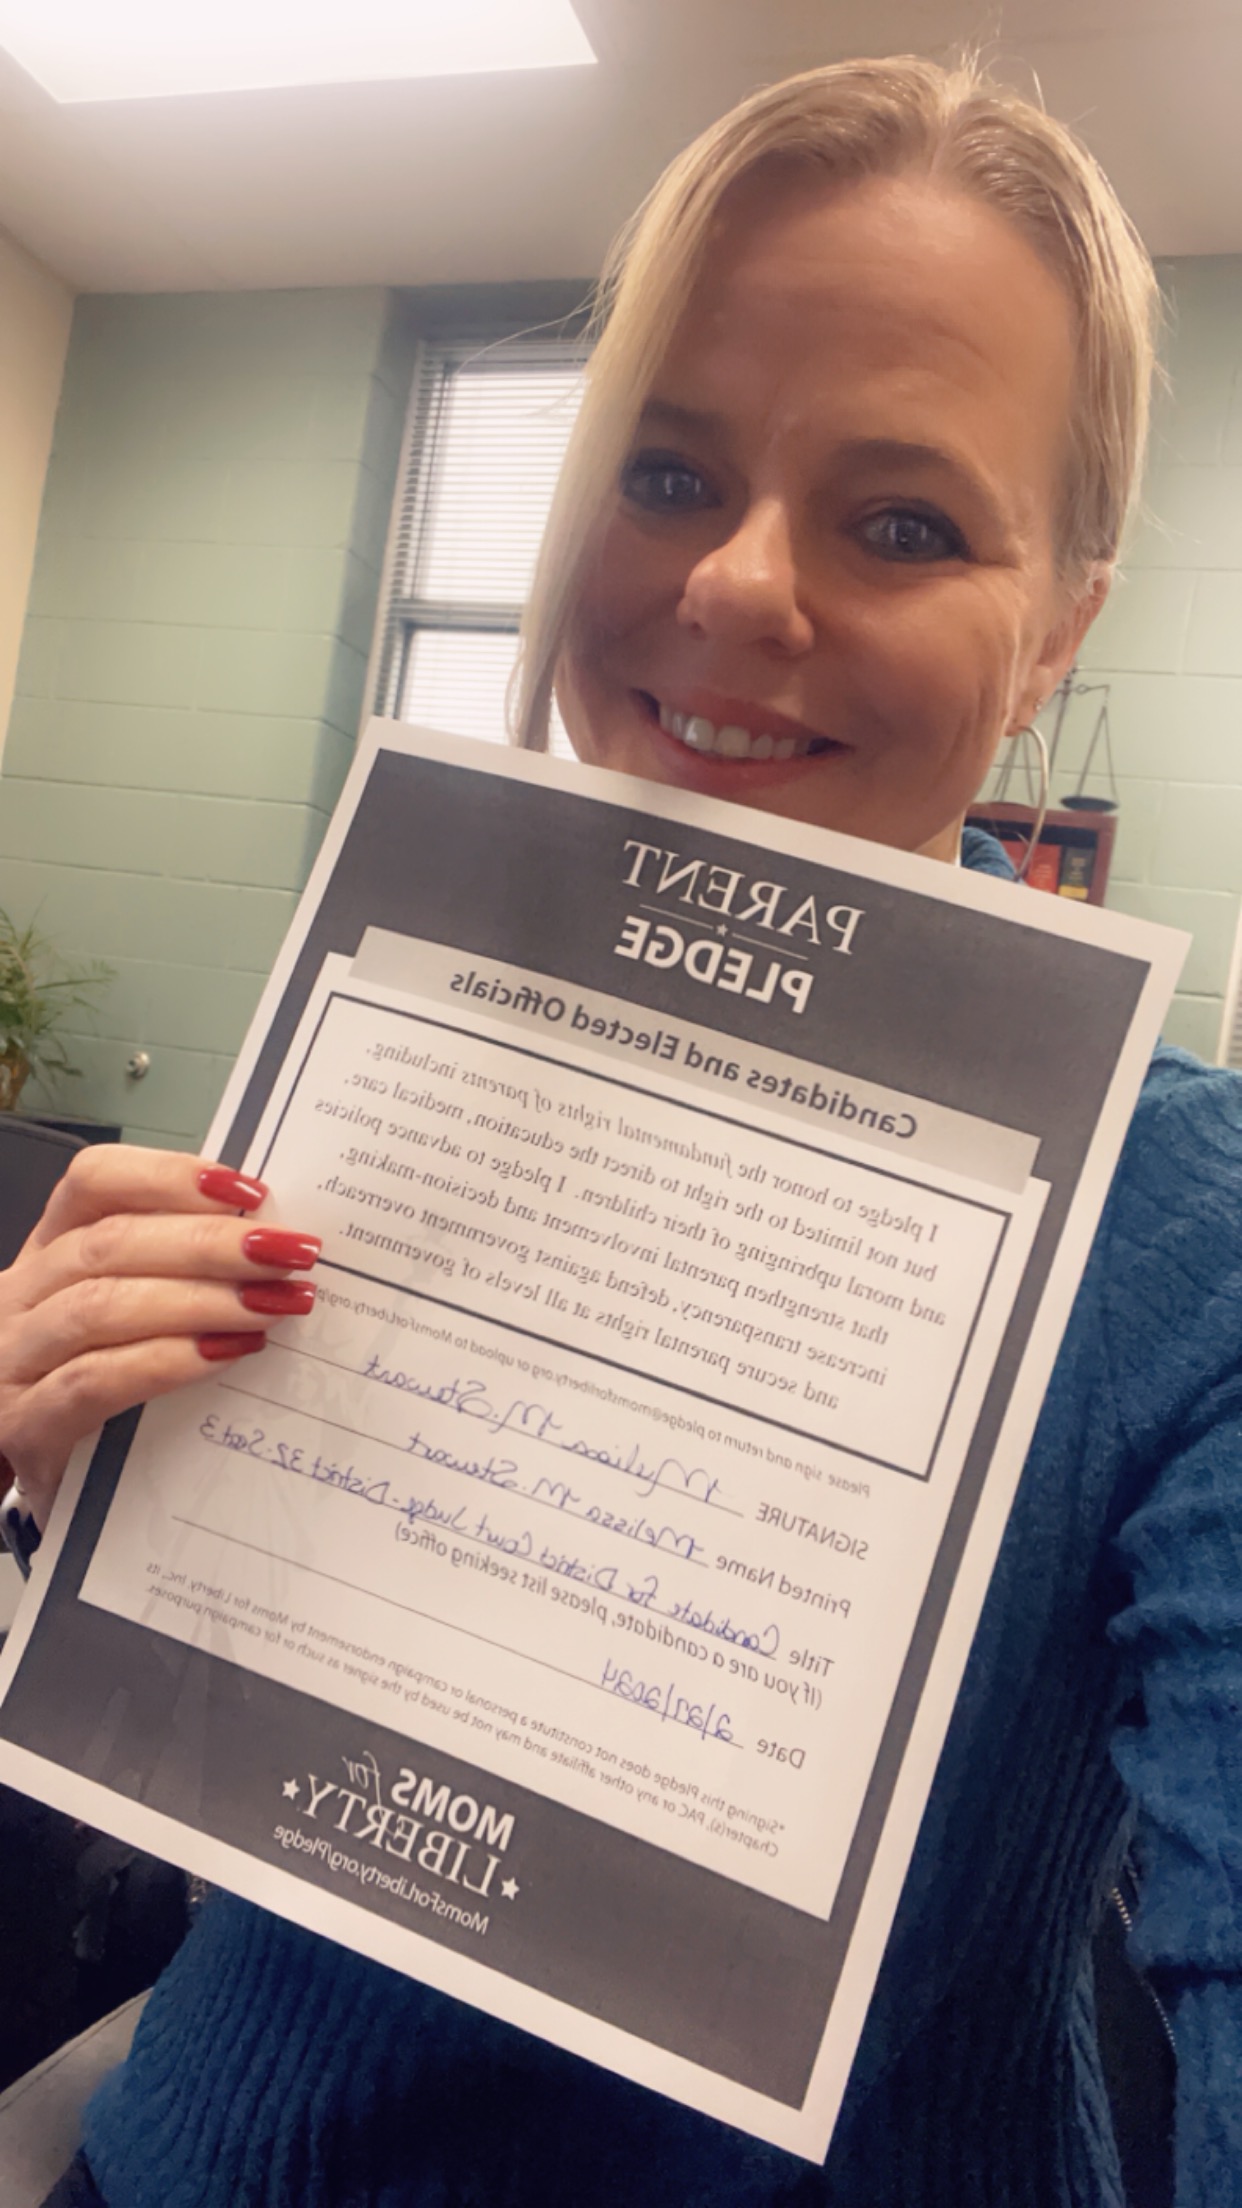 PARENT
PLEDGE
Candidates and Elected Officials
I pledge to honor the fundamental rights of parents including,
but not limited to the right to direct the education, medical care,
and moral upbringing of their children. I pledge to advance policies
that strengthen parental involvement and decision-making,
increase transparency, defend against government overreach,
and secure parental rights at all levels of government.
Please sign and return to pledge@momsforliberty.org or upload to MomsForLiberty.org/p
SIGNATURE Melissa M. Stewart
Printed Name Melissa M. Stewart
Title Candidate for District Court Judge - District 32 - Seat 3
(If you are a candidate, please list seeking office)
Date 2/27/2024
*Signing this Pledge does not constitute a personal or campaign endorsement by Moms for Liberty, Inc., its
Chapter(s), PAC or any other affiliate and may not be used by the signer as such or for campaign purposes.
MOMS for
LIBERTY
MomsForLiberty.org/Pledge